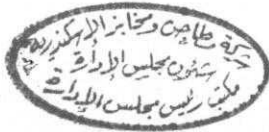 شركة مطاحن ومخابز الإسكندرية
شئون مجلس الإدارة
مكتب رئيس مجلس الإدارة